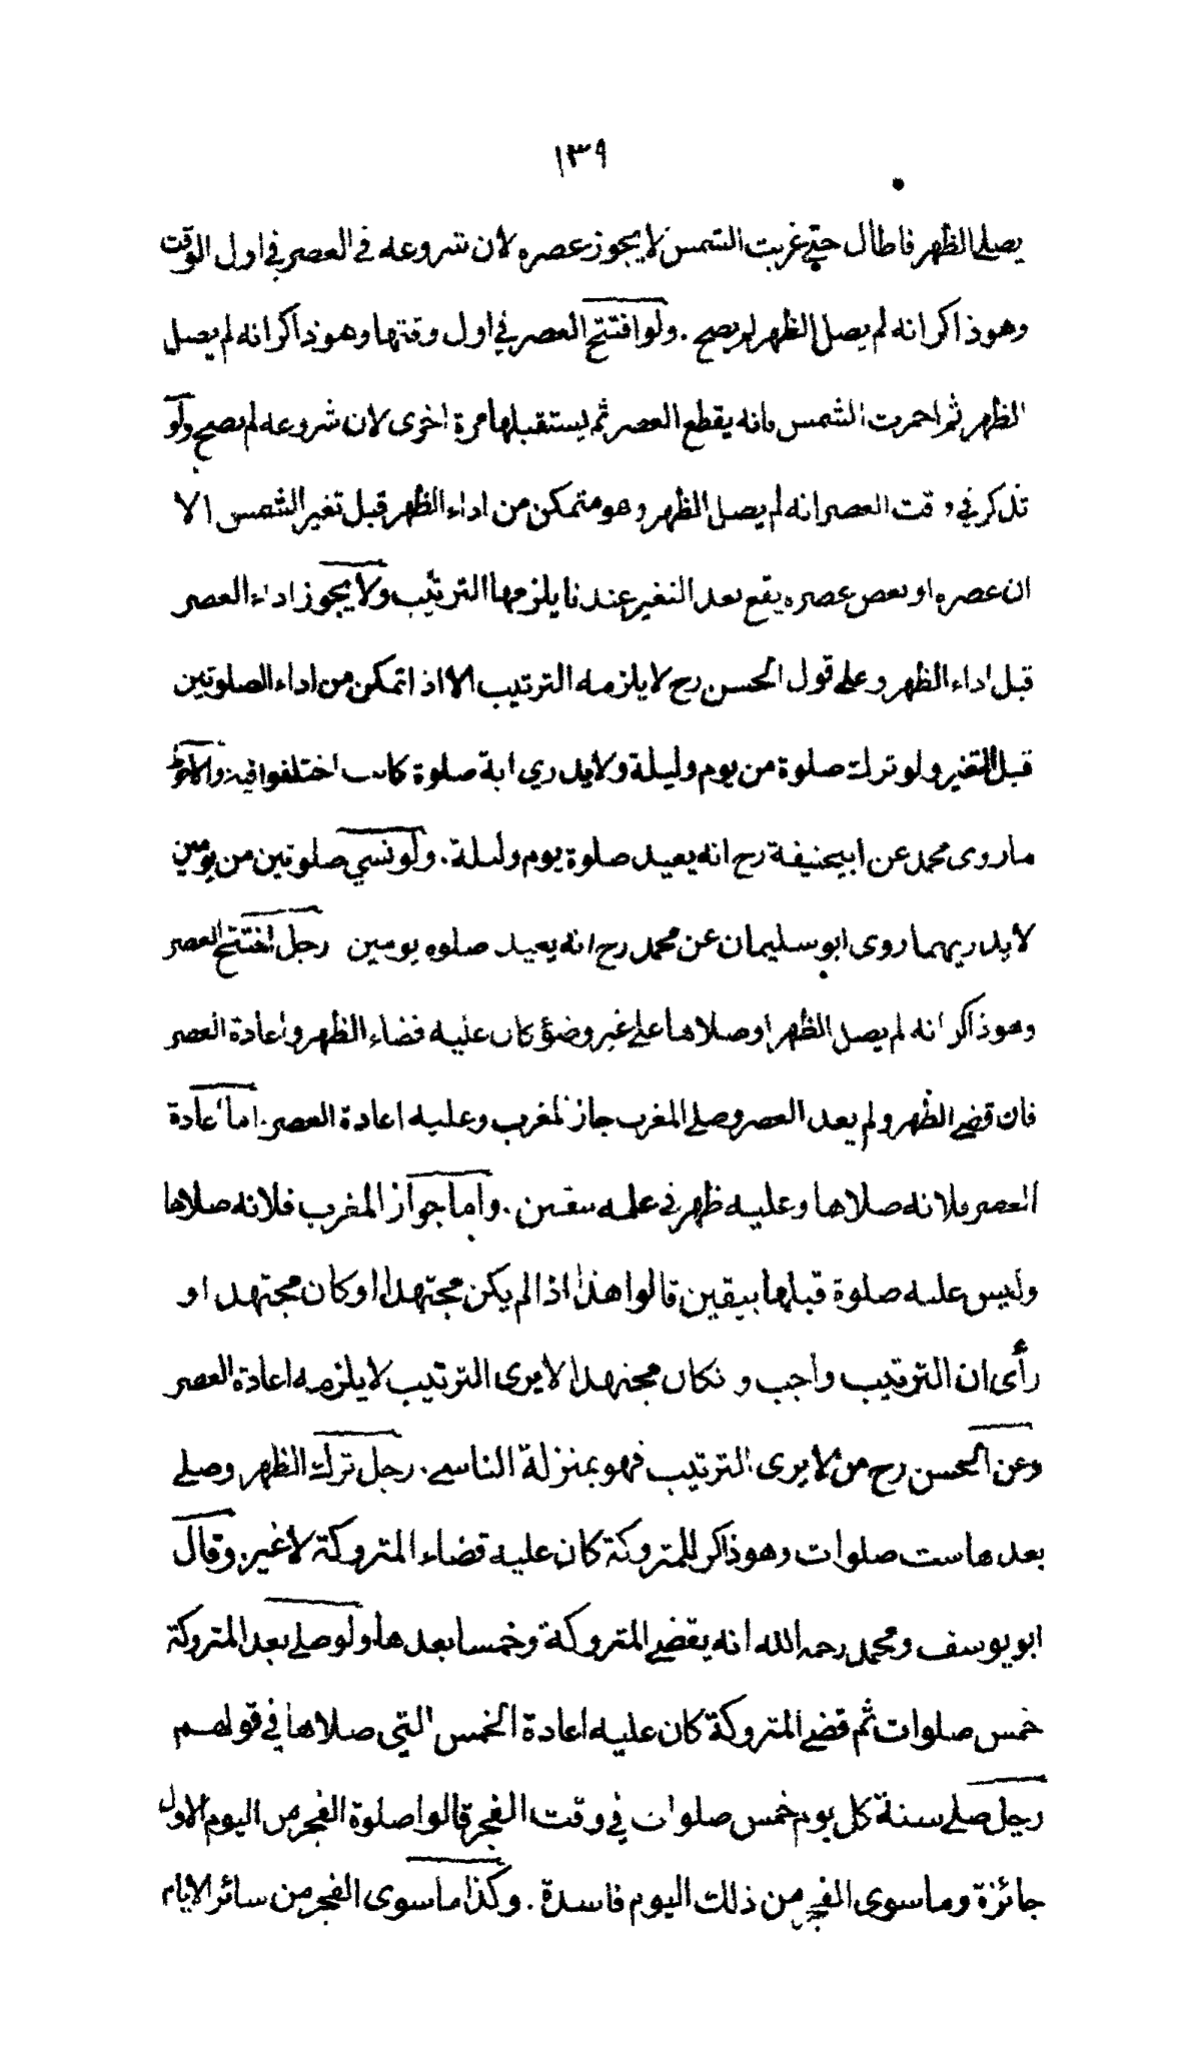 ١٣٩
يصلى الظهر فاطال حتى غربت الشمس لا يجوز عصره لان شروعه في العصر في اول الوقت
وهو ذاكر انه لم يصل الظهر لم يصح . ولو افتتح العصر في اول وقتها وهو ذاكر انه لم يصل
الظهر ثم احمرت الشمس فانه يقطع العصر ثم يستقبلها مرة اخرى لان شروعه لم يصح ولو
تذكر في وقت العصر انه لم يصل الظهر وهو متمكن من اداء الظهر قبل تغير الشمس الا
ان عصره او بعض عصره يقع بعد التغير عندنا يلزمها الترتيب ولا يجوز اداء العصر
قبل اداء الظهر وعلى قول الحسن رح لا يلزمه الترتيب الا اذا تمكن من اداء الصلوتين
قبل التغير ولو ترك صلوة من يوم وليلة ولا يدري اية صلوة كانت اختلفوا فيه
ما روى محمد عن ابيحنيفة رح انه يعيد صلوة يوم وليلة . ولو نسي صلوتين من يومين
لا يدريهما روى ابو سليمان عن محمد رح انه يعيد صلوه يومين رجل افتتح العصر
وهو ذاكر انه لم يصل الظهر او صلاها على غير وضؤ كان عليه قضاء الظهر واعادة العصر
فان قضى الظهر ولم يعد العصر وصلى المغرب جاز المغرب وعليه اعادة العصر . اما اعادة
العصر فلانه صلاها وعليه ظهر في علمه بيقين . واما جواز المغرب فلانه صلاها
وليس عليه صلوة قبلها بيقين قالوا هذا اذا لم يكن مجتهدا او كان مجتهد او
رأى ان الترتيب واجب و نكان مجتهدا لا يرى الترتيب لا يلزمه اعادة العصر
وعن الحسن رح من لا يرى الترتيب فهو بمنزلة الناسى . رجل ترك الظهر وصلى
بعدها ست صلوات وهو ذاكر للمتروكة كان عليه قضاء المتروكة لا غير . وقال
ابو يوسف ومحمد رحمه الله انه يقضى المتروكة وخمسا بعدها ولو صلى بعد المتروكة
خمس صلوات ثم قضى المتروكة كان عليه اعادة الخمس التي صلاها في قولهم
رجل صلى سنة كل يوم خمس صلوات في وقت الفجر قالوا صلوة الفجر من اليوم الاول
جائزة وما سوى الفجر من ذلك اليوم فاسدة . وكذا ما سوى الفجر من سائر الايام